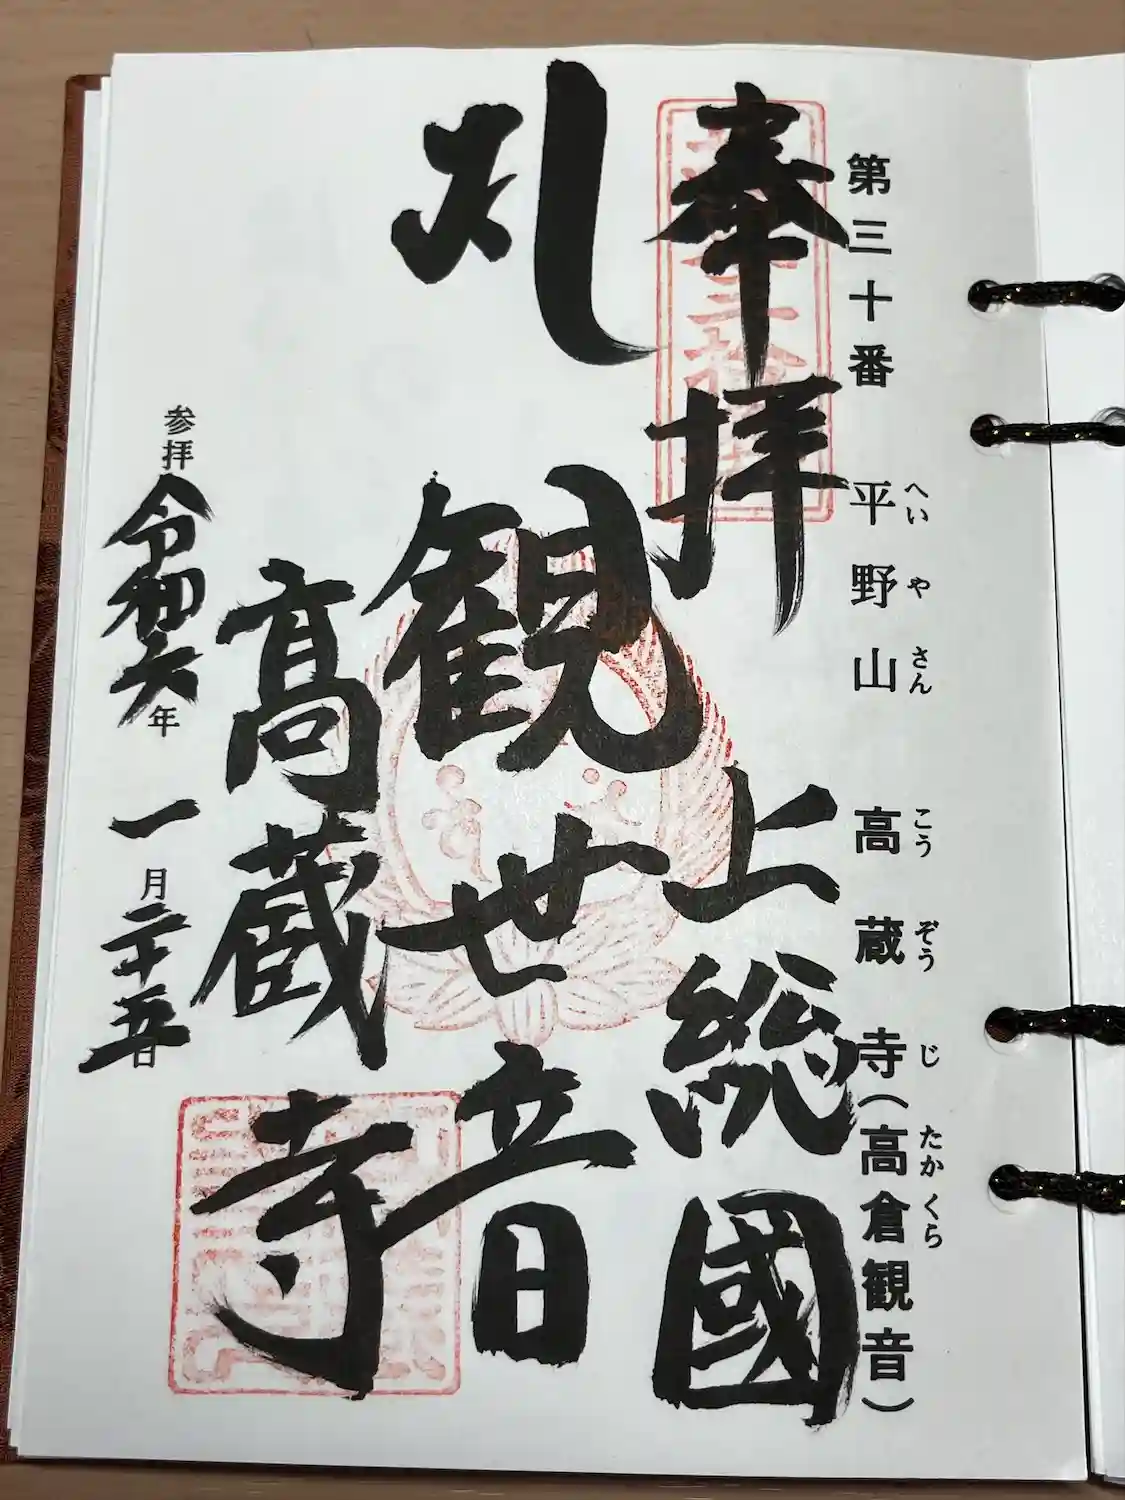 第三十番 平野山 高蔵寺(高倉観音)
へいやさん こうぞうじ たかくら
奉拝 上総國
札 観世音
高蔵寺
参拝 令和六年 一月二十五日